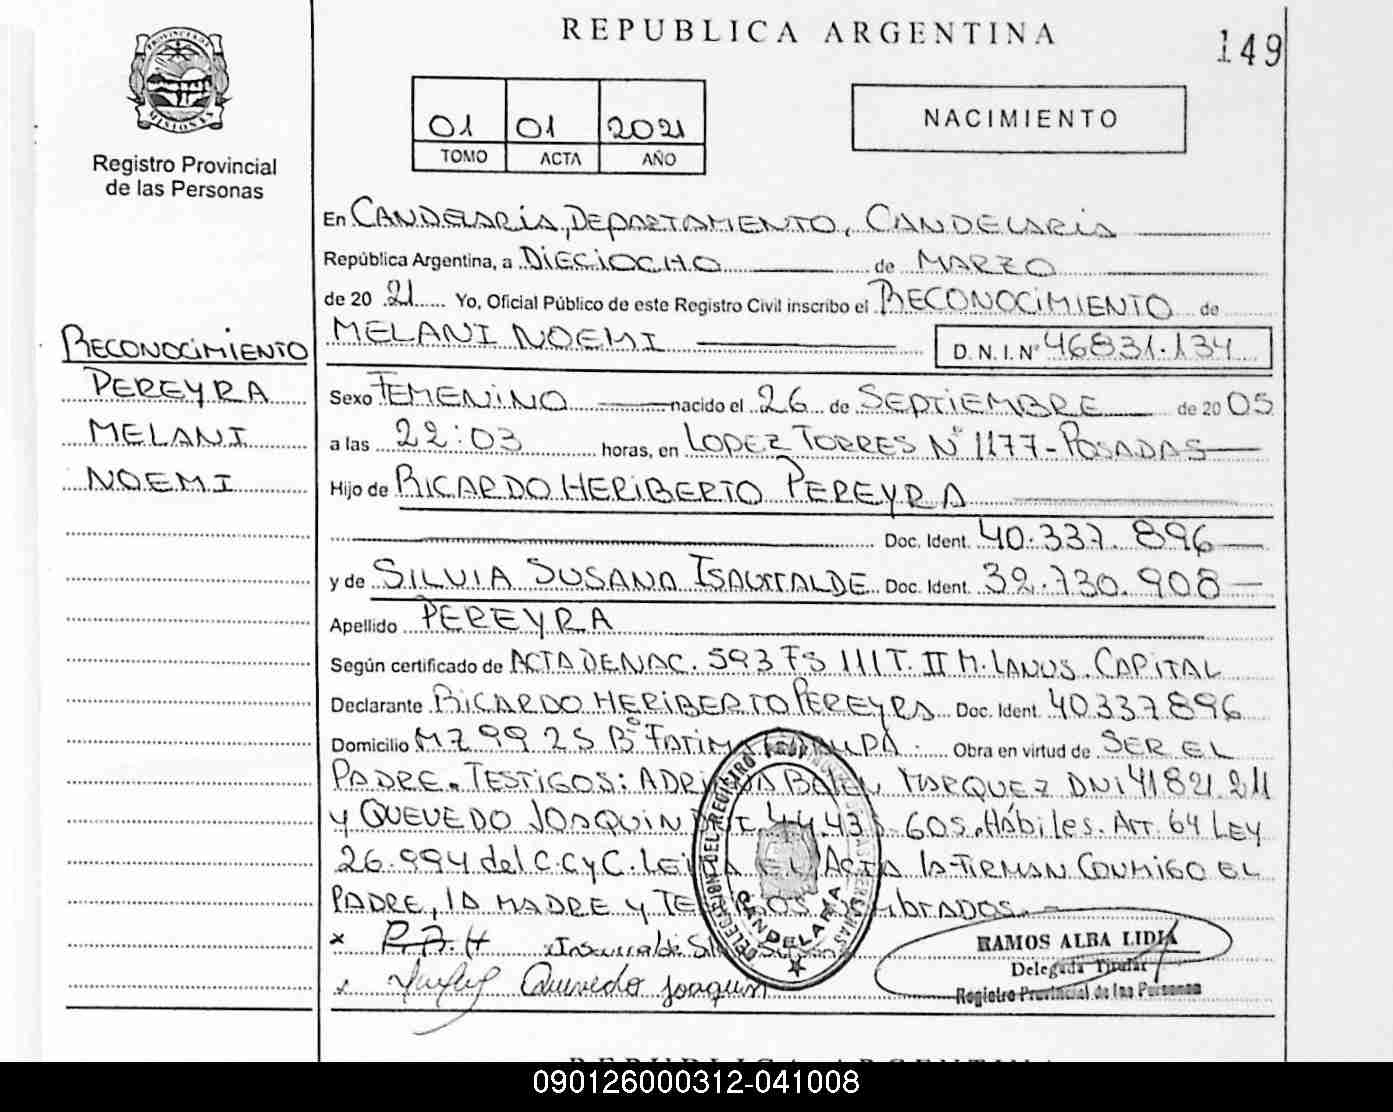 REPUBLICA ARGENTINA
149
PROVINCIA DE MISIONES
Registro Provincial
de las Personas
01 01 2021
TOMO ACTA AÑO
NACIMIENTO
En CANDELARIA, DEPARTAMENTO, CANDELARIA
República Argentina, a DIECIOCHO de MARZO
de 20 21 Yo, Oficial Público de este Registro Civil inscribo el RECONOCIMIENTO de
MELANI NOEMI D.N.I. Nº 46831.134
RECONOCIMIENTO
PEREYRA
MELANI
NOEMI
Sexo FEMENINO nacido el 26 de SEPTIEMBRE de 20 05
a las 22:03 horas, en LOPEZ TORRES Nº 1177-POSADAS
Hijo de RICARDO HERIBERTO PEREYRA
Doc. Ident. 40.337.896
y de SILVIA SUSANA Doc. Ident. 32.730.908
Apellido PEREYRA
Según certificado de ACTA DE NAC. 593 FS 111 T. II M. LANUS. CAPITAL
Declarante RICARDO HERIBERTO PEREYRA Doc. Ident. 40337896
Domicilio MZ 99 Bº FATIMA Obra en virtud de SER EL
PADRE. TESTIGOS: MARQUEZ DNI 41821.211
y QUEVEDO JOAQUIN 605. Hábiles. Art. 64 LEY
26.994 del C.C y C. ACTA la FIRMAN CONMIGO EL
PADRE, LA MADRE y
x R.P.H x
x Quevedo Joaquin
DELEGACION DEL REGISTRO PROVINCIAL DE LAS PERSONAS
CANDELARIA
RAMOS ALBA LIDIA
Delegada Titular
Registro Provincial de las Personas
REPUBLICA ARGENTINA
090126000312-041008